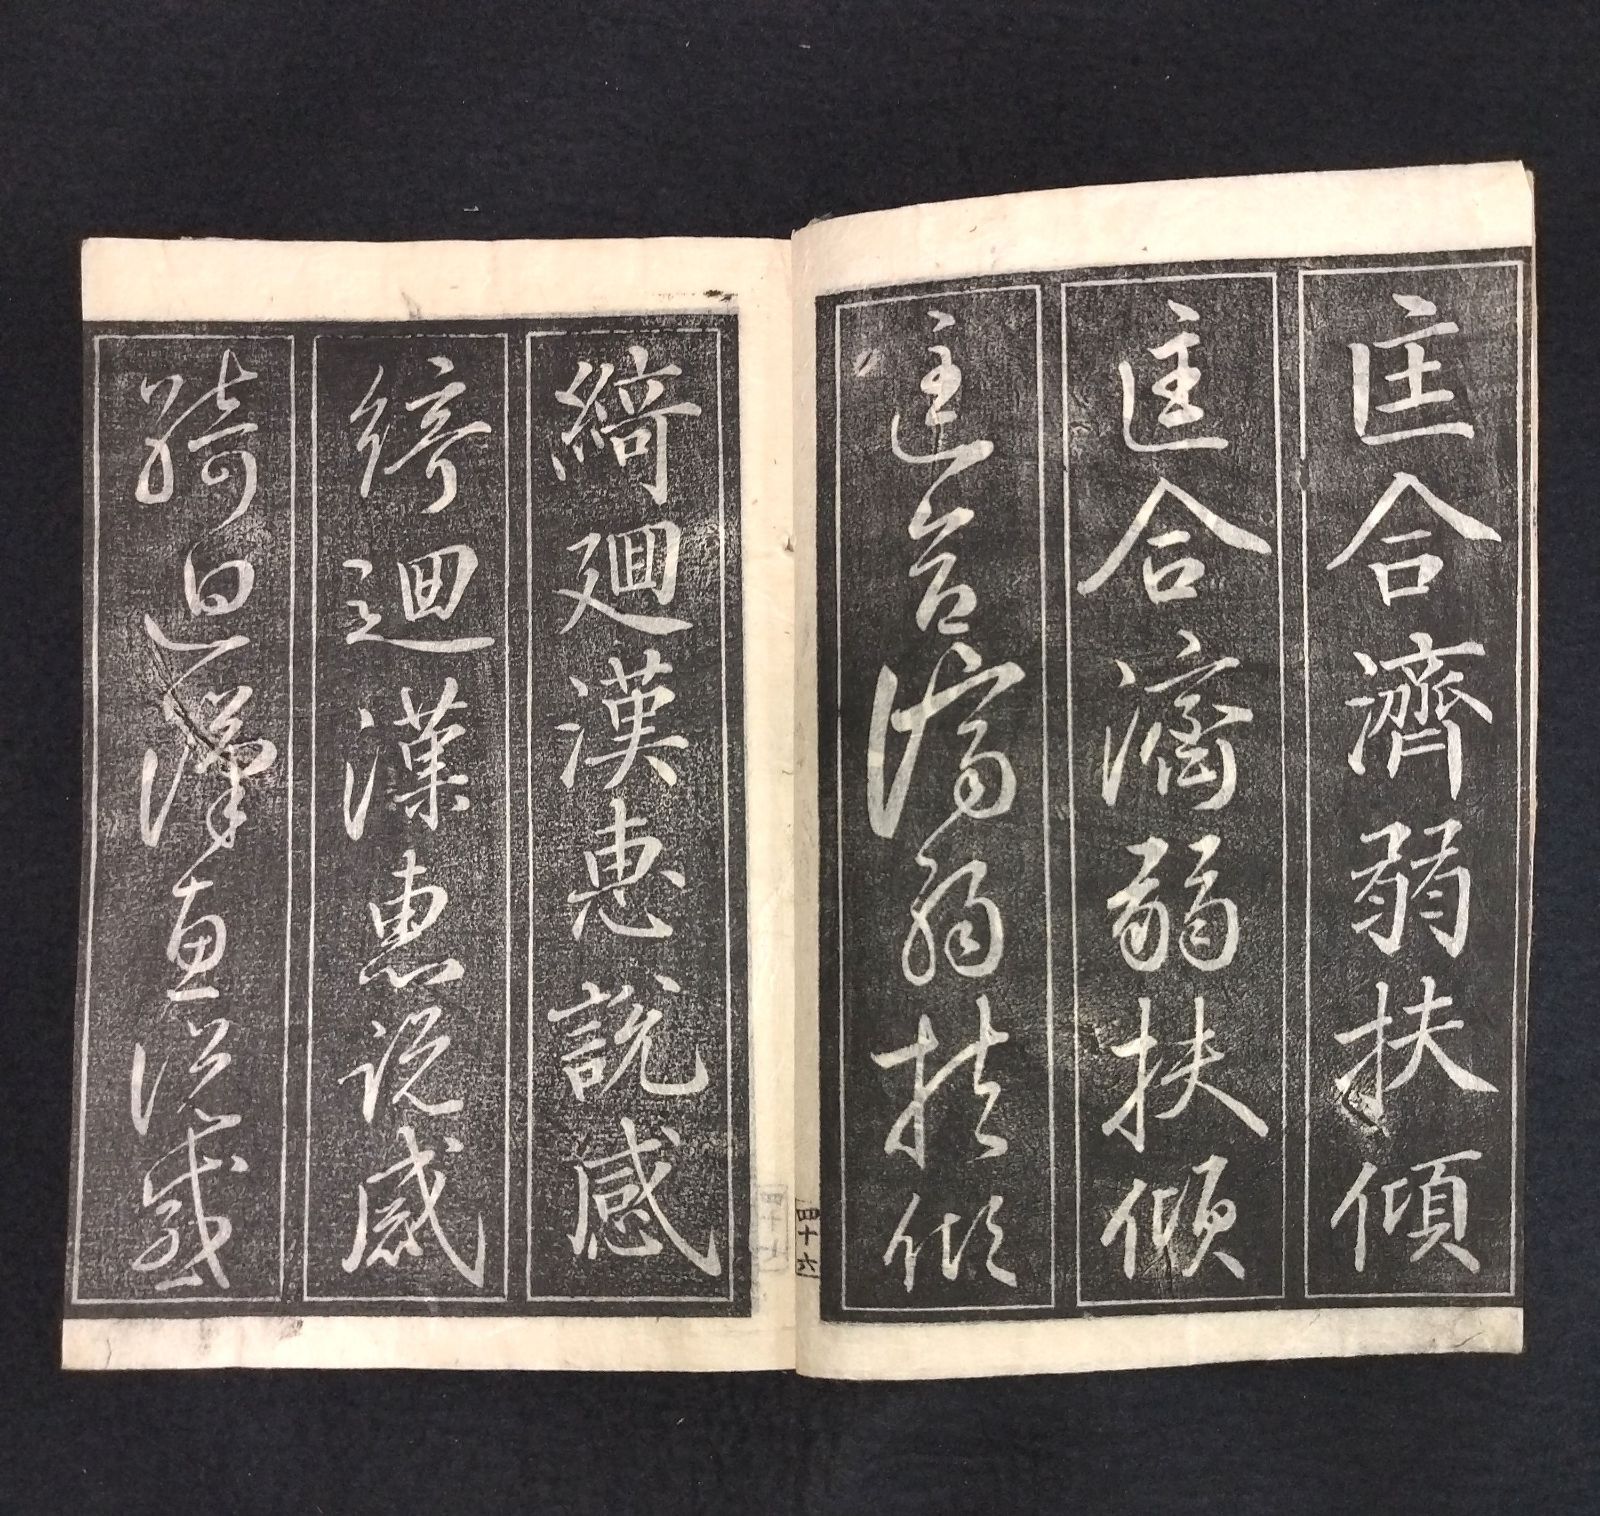 匡合濟弱扶傾
匡合濟弱扶傾
匡合濟弱扶傾
四十六
綺迴漢惠說感
綺迴漢惠說感
綺迴漢惠說感